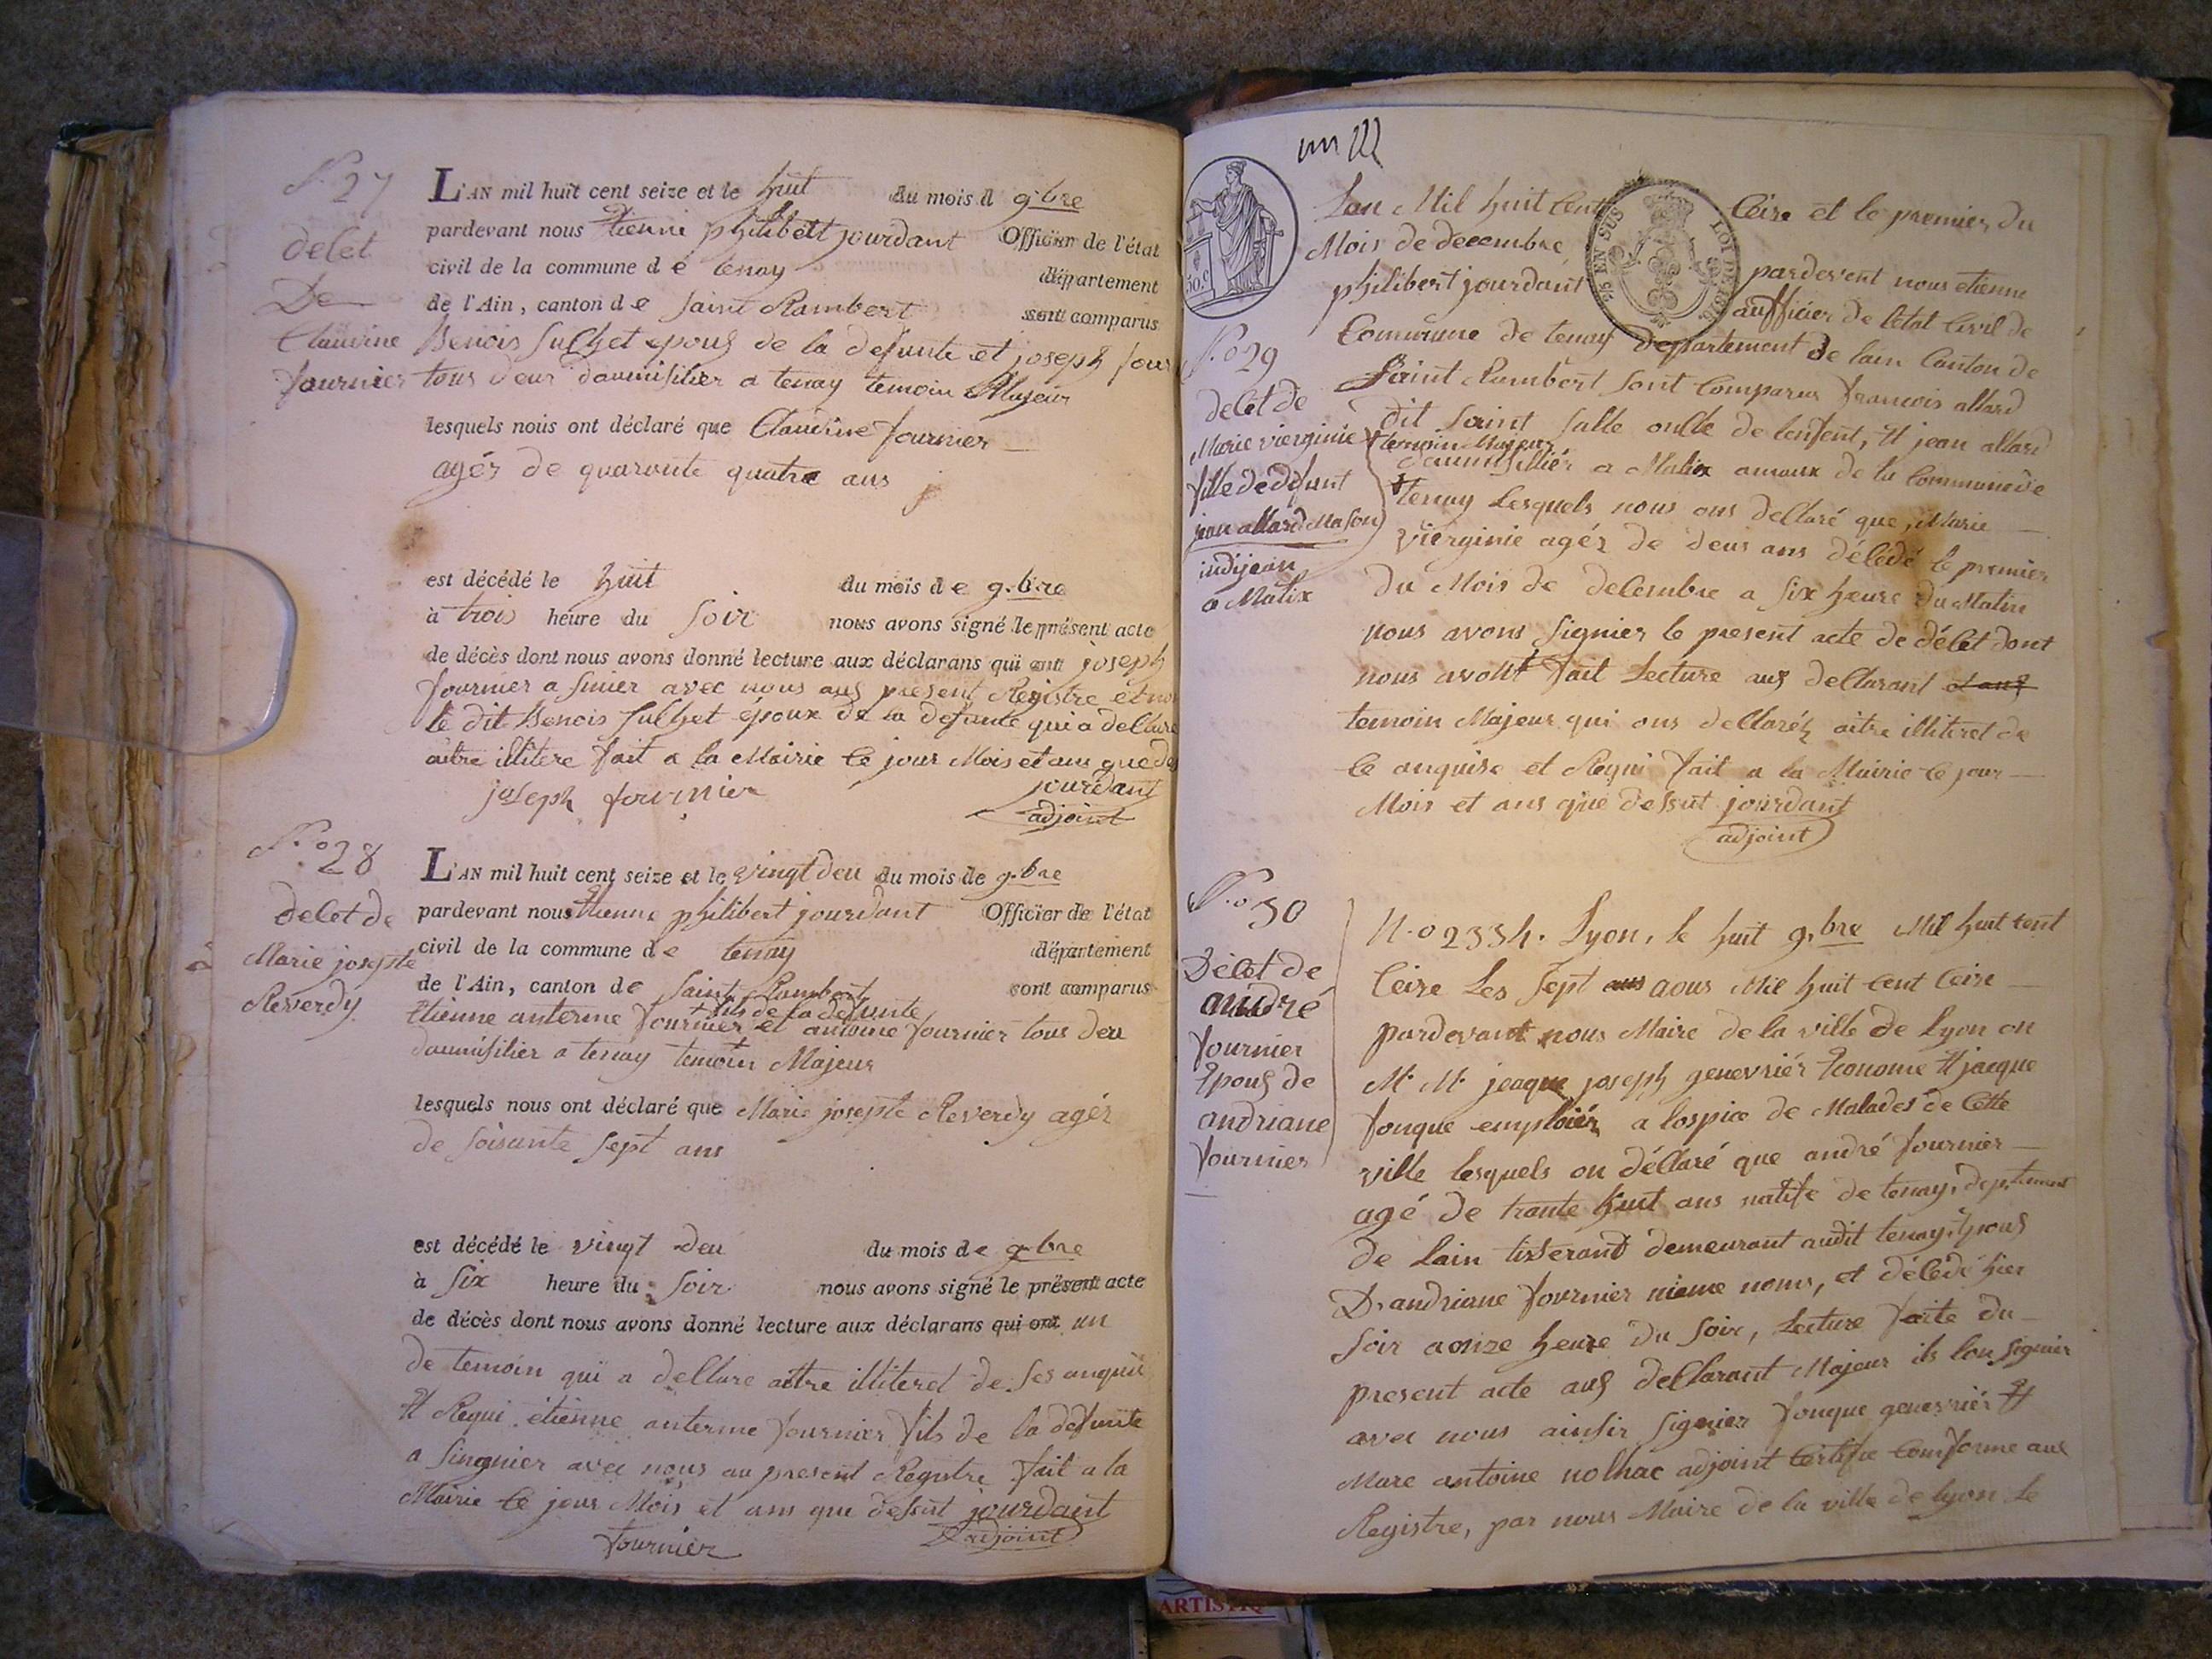 N.o 27
delet
De
Claudine
fournier
L'AN mil huit cent seize et le huit du mois d 9.bre
pardevant nous Etienne philibett jourdant Officier de l'état
civil de la commune d e tenay département
de l'Ain, canton d e Saint Rambert sont comparus
Benois Sulhet epous de la defunte et joseph four
tous deux daumisilier a tenay temoin Majeur
lesquels nous ont déclaré que Claudine fournier
agér de quarante quatre ans
est décédé le huit du mois d e 9.bre
à trois heure du Soir nous avons signé le présent acte
de décès dont nous avons donné lecture aux déclarans qui ont joseph
fournier a sinier avec nous aus present Registre et non
le dit Benois Sulhet époux de la defunte qui a dellare
aitre illitere fait a la Mairie le jour Mois et ans que des
joseph fournier jourdant
adjoint
N.o 28
delet de
Marie josepte
Reverdy
L'AN mil huit cent seize et le vingt deu du mois de 9.bre
pardevant nous Etienne philibert jourdant Officier de l'état
civil de la commune d e tenay département
de l'Ain, canton de Saint Rambert sont comparus
fils de la defunte
Etienne anterme fournier et antoine fournier tous deu
daumisilier a tenay temoin Majeur
lesquels nous ont déclaré que Marie josepte Reverdy agér
de soisante sept ans
est décédé le vingt deu du mois d e 9.bre
à six heure du Soir nous avons signé le présent acte
de décès dont nous avons donné lecture aux déclarans qui ont un
de temoin qui a dellare aitre illiteret de ses anquis
Et Requi etienne anterme fournier fils de la defunte
a singnier avec nous au present Registre fait a la
Mairie le jour Mois et ans que dessut jourdant
fournier adjoint
EN SUS LOI DE 1816
50.c
Lan Mil huit Cent Ceize et le premier du
Mois de decembre pardevent nous etienne
philibert jourdant aufficier de letat Civil de
Commune de tenay departement de lain Canton de
Saint Rambert sont Comparus francois allard
N.o 29
delet de
Marie vierginie
fille de defunt
jean allard Mason
indijean
a Malix
dit Saint Salle onlle de lenfent, Et jean allard
temoin Majeur
daumisillier a Malix amaux de la Commune de
tenay Lesquels nous ons dellaré que, Marie
vierginie agér de deus ans délédé le premier
du Mois de decembre a six heure du Matin
nous avons signier le present acte de délet dont
nous avont fait Lecture aus dellarant et aus
temoin Majeur qui ons dellarér aitre illiteret de
ce anquise et Requi fait a la Mairie le jour
Mois et ans que dessut jourdant
adjoint
N.o 30
Délet de
andré
fournier
Epous de
andriane
fournier
N.o 2334. Lyon, le huit 9.bre Mil huit cent
Ceize Les sept ans aous Mil huit Cent Ceize
pardevant nous Maire de la ville de lyon on
M. M. jeaque joseph genevriér Econome Et jacque
fonque emploiér a lospice de Malades de Cette
ville lesquels on déllaré que andré fournier
agé de trante huit ans natife de tenay, deptement
de Lain tisserand demeurant audit tenay, Epous
D. andriane fournier nieme noms, et délédé hier
soir a onze heure du soir, Lecture faite du
present acte aus dellarant Majeur ils lon signier
avec nous ainsir signier fonque genevriér Et
Mare antoine nolhac adjoint Certifie Comforme aux
Registre, par nous Maire de la ville de lyon Le
ARTISTIQ